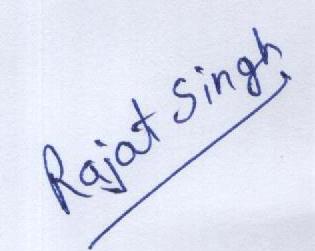 Rajat Singh